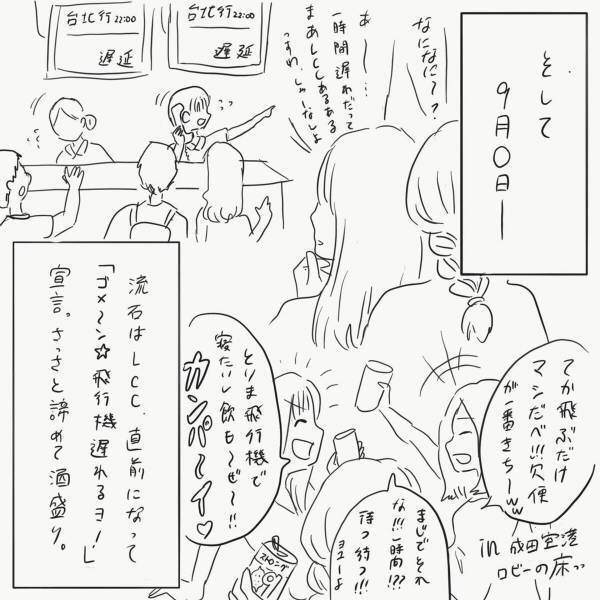 そして
９月〇日ー
なになに〜？
あー…
一時間遅れだって
まあLCCあるある
っすわ、しゃーなしよ
台北行22:00
遅延
台北行22:00
遅延
てか飛ぶだけ
マシだべ!!!欠便
が一番きちーww
とりま飛行機で
寝たいし飲も〜ぜ〜!!
カンパ〜イ♡
まじでそれ
な!!!一時間!??
待つ待つ!!!
ヨユーよ
ストロング
9
in 成田空港
ロビーの床っっ
流石はLCC、直前になって
「ゴメ〜ン☆飛行機遅れるヨ！」
宣言。さっさと諦めて酒盛り。